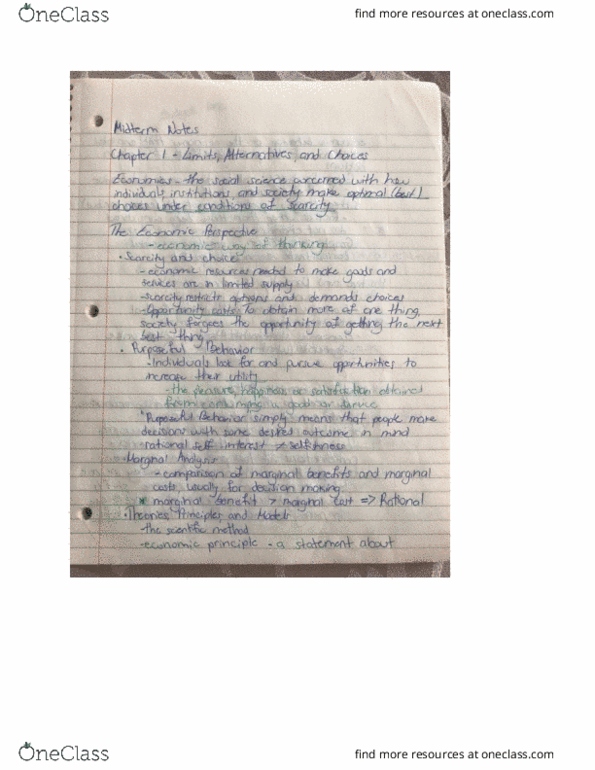 OneClass
find more resources at oneclass.com
Midterm Notes
Chapter 1 - Limits, Alternatives, and Choices
Economics - the social science concerned with how
individuals institutions, and society make optimal (best)
choices under conditions of scarcity
The Economic Perspective
- economic way of thinking
• Scarcity and choice
- economic resources needed to make goods and
services are in limited supply
- scarcity restricts options and demands choices
- Opportunity costs: To obtain more of one thing
society forgoes the opportunity of getting the next
best thing
• Purposeful Behavior
• Individuals look for and pursue opportunities to
increase their utility
- the pleasure, happiness, or satisfaction obtained
from consuming a good or service
"Purposeful Behavior" simply means that people make
decisions with some desired outcome in mind
rational self interest ≠ selfishness
• Marginal Analysis
- comparison of marginal benefits and marginal
costs usually for decision making
* marginal benefit > marginal cost => Rational
• Theories, Principles and Models
- the scientific method
- economic principle - a statement about
OneClass
find more resources at oneclass.com